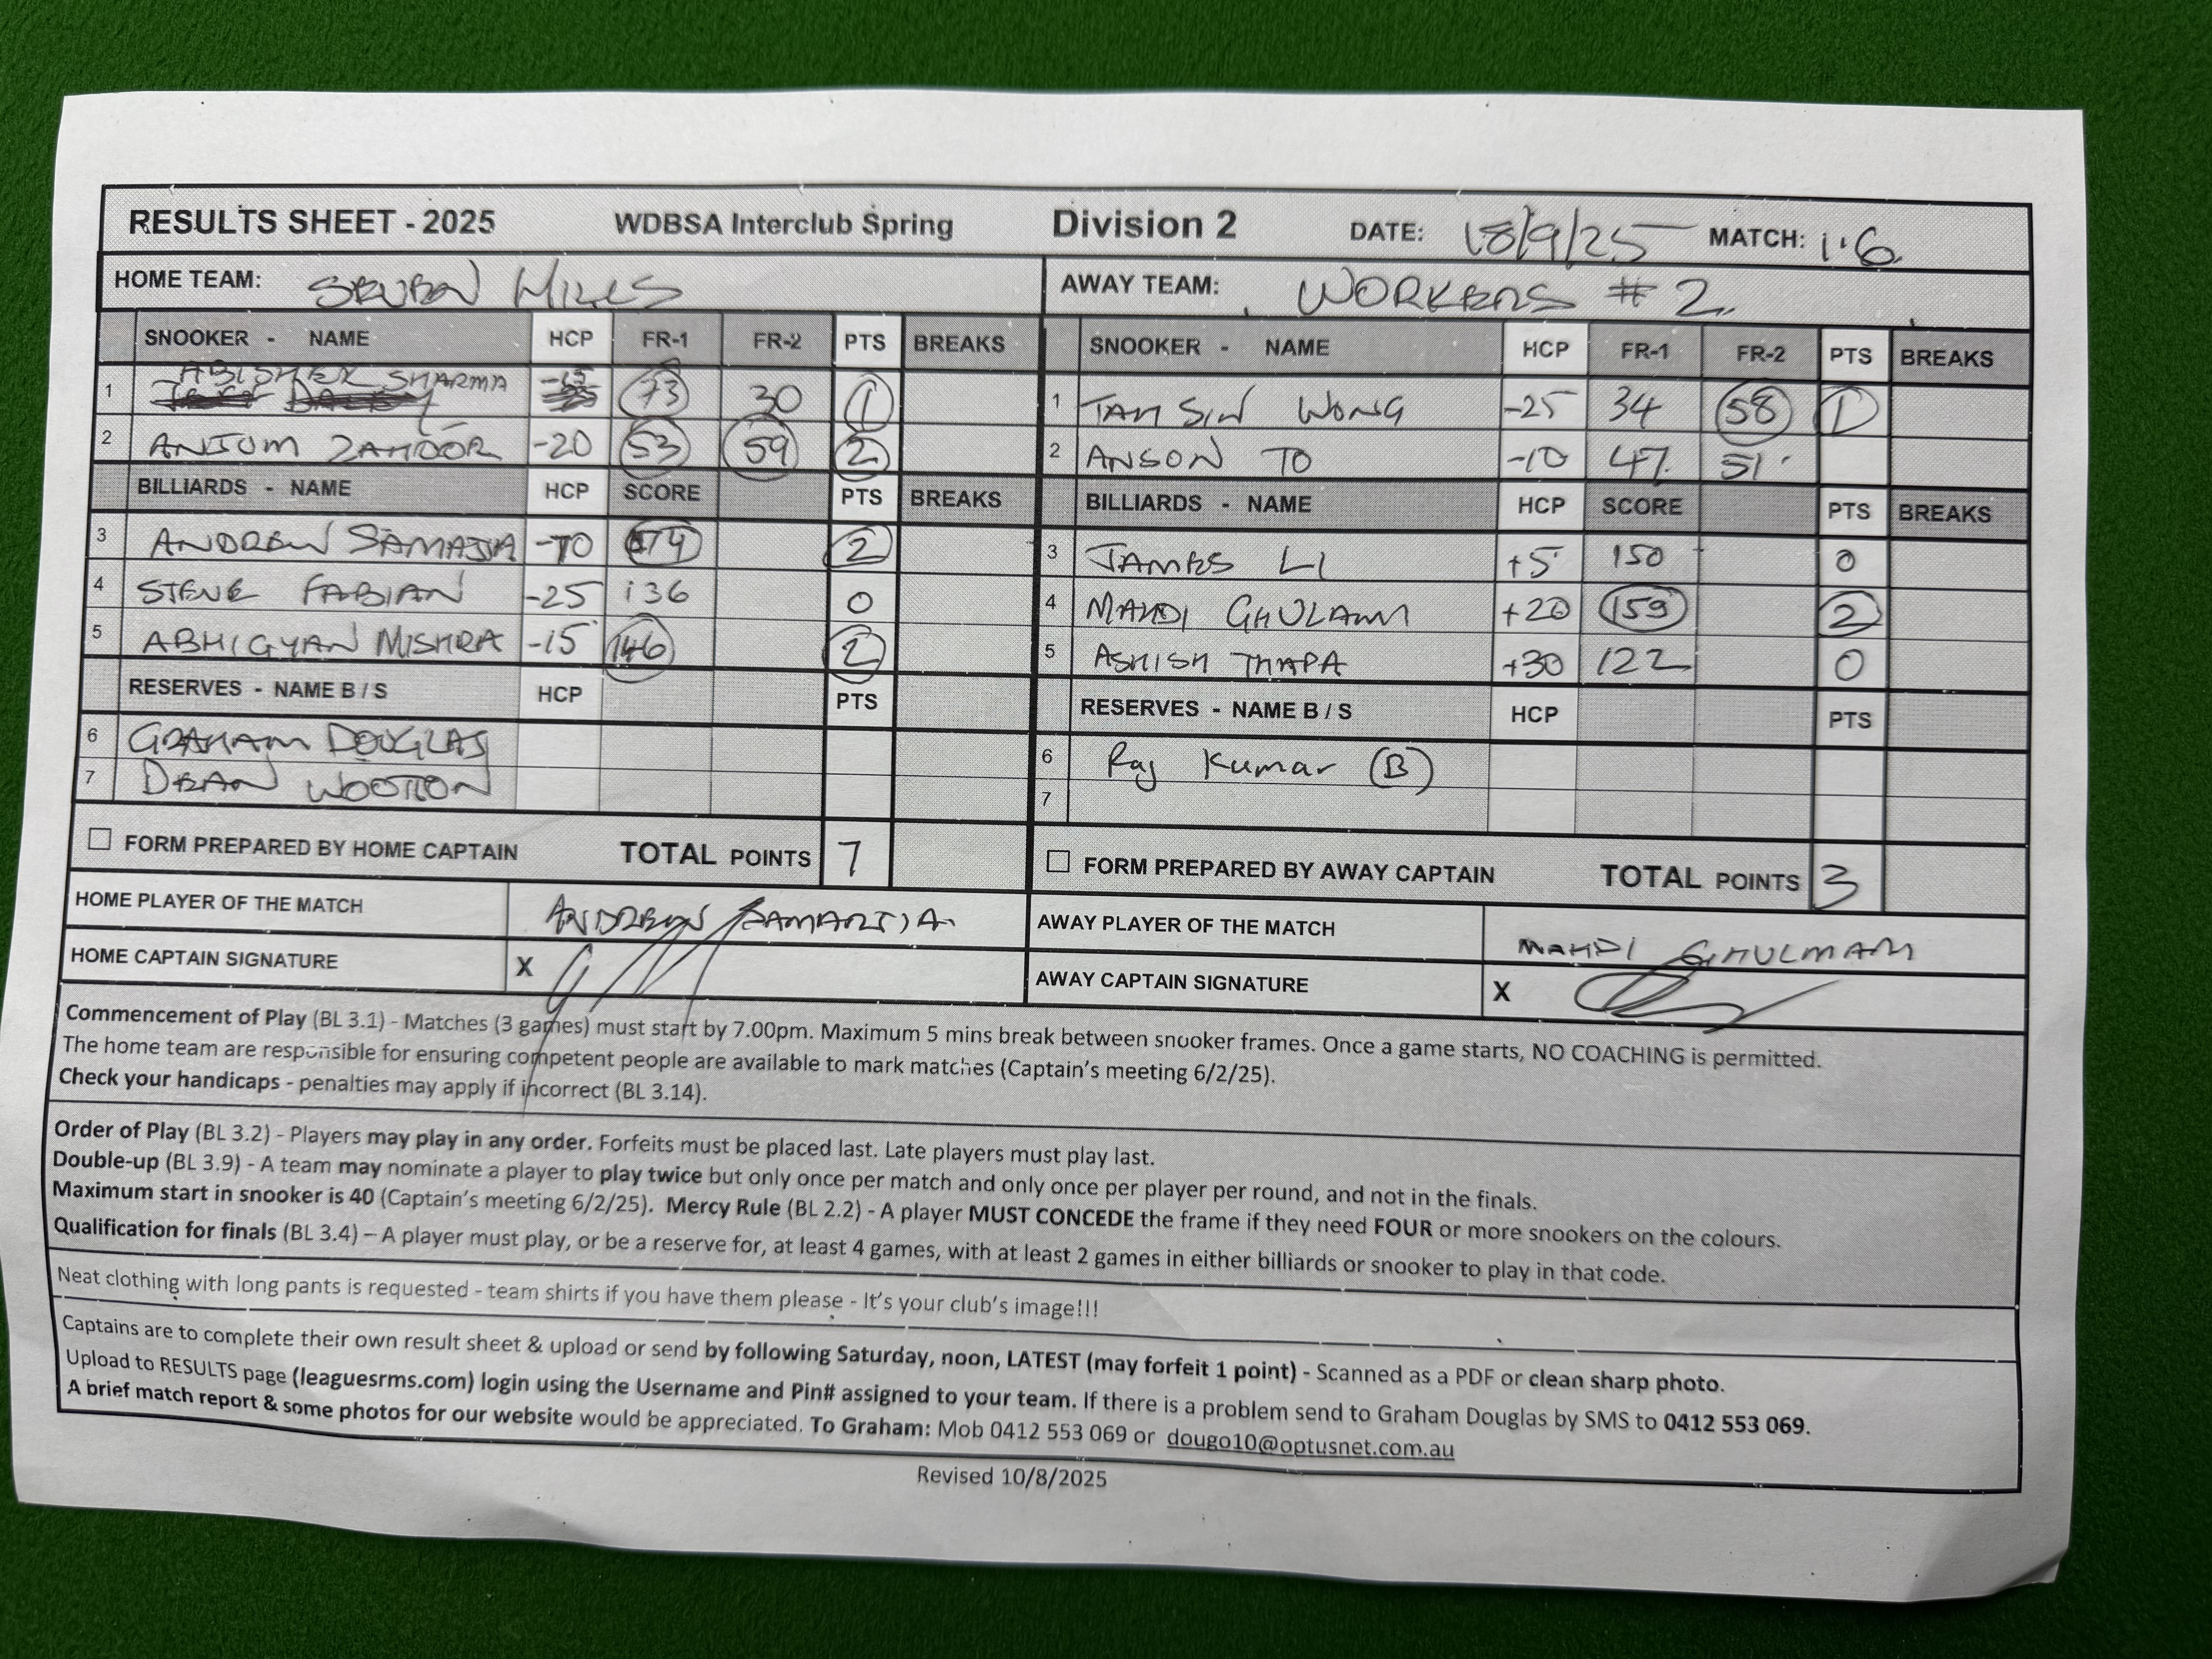 RESULTS SHEET - 2025 WDBSA Interclub Spring Division 2 DATE: 18/9/25 MATCH: 1.6
HOME TEAM: SEVEN HILLS AWAY TEAM: WORKERS #2
SNOOKER - NAME HCP FR-1 FR-2 PTS BREAKS SNOOKER - NAME HCP FR-1 FR-2 PTS BREAKS
1 ABISHEK SHARMA -15 73 30 1 1 TAM SIN WONG -25 34 58 1
2 ANJUM ZAHOOR -20 53 59 2 2 ANSON TO -10 47 51
BILLIARDS - NAME HCP SCORE PTS BREAKS BILLIARDS - NAME HCP SCORE PTS BREAKS
3 ANDREW -70 174 2 3 JAMES LI +5 150 0
4 STEVE FABIAN -25 136 0 4 MAHDI GHULAM +20 159 2
5 ABHIGYAN MISHRA -15 146 2 5 ASHISH THAPA +30 122 0
RESERVES - NAME B / S HCP PTS RESERVES - NAME B / S HCP PTS
6 GRAHAM DOUGLAS 6 Raj Kumar (B)
7 DEAN WOOTTON 7
FORM PREPARED BY HOME CAPTAIN TOTAL POINTS 7 FORM PREPARED BY AWAY CAPTAIN TOTAL POINTS 3
HOME PLAYER OF THE MATCH ANDREW SAMARTJA AWAY PLAYER OF THE MATCH MAHDI GHULMAM
HOME CAPTAIN SIGNATURE X AWAY CAPTAIN SIGNATURE X
Commencement of Play (BL 3.1) - Matches (3 games) must start by 7.00pm. Maximum 5 mins break between snooker frames. Once a game starts, NO COACHING is permitted.
The home team are responsible for ensuring competent people are available to mark matches (Captain's meeting 6/2/25).
Check your handicaps - penalties may apply if incorrect (BL 3.14).
Order of Play (BL 3.2) - Players may play in any order. Forfeits must be placed last. Late players must play last.
Double-up (BL 3.9) - A team may nominate a player to play twice but only once per match and only once per player per round, and not in the finals.
Maximum start in snooker is 40 (Captain's meeting 6/2/25). Mercy Rule (BL 2.2) - A player MUST CONCEDE the frame if they need FOUR or more snookers on the colours.
Qualification for finals (BL 3.4) – A player must play, or be a reserve for, at least 4 games, with at least 2 games in either billiards or snooker to play in that code.
Neat clothing with long pants is requested - team shirts if you have them please - It's your club's image!!!
Captains are to complete their own result sheet & upload or send by following Saturday, noon, LATEST (may forfeit 1 point) - Scanned as a PDF or clean sharp photo.
Upload to RESULTS page (leaguesrms.com) login using the Username and Pin# assigned to your team. If there is a problem send to Graham Douglas by SMS to 0412 553 069.
A brief match report & some photos for our website would be appreciated. To Graham: Mob 0412 553 069 or dougo10@optusnet.com.au
Revised 10/8/2025